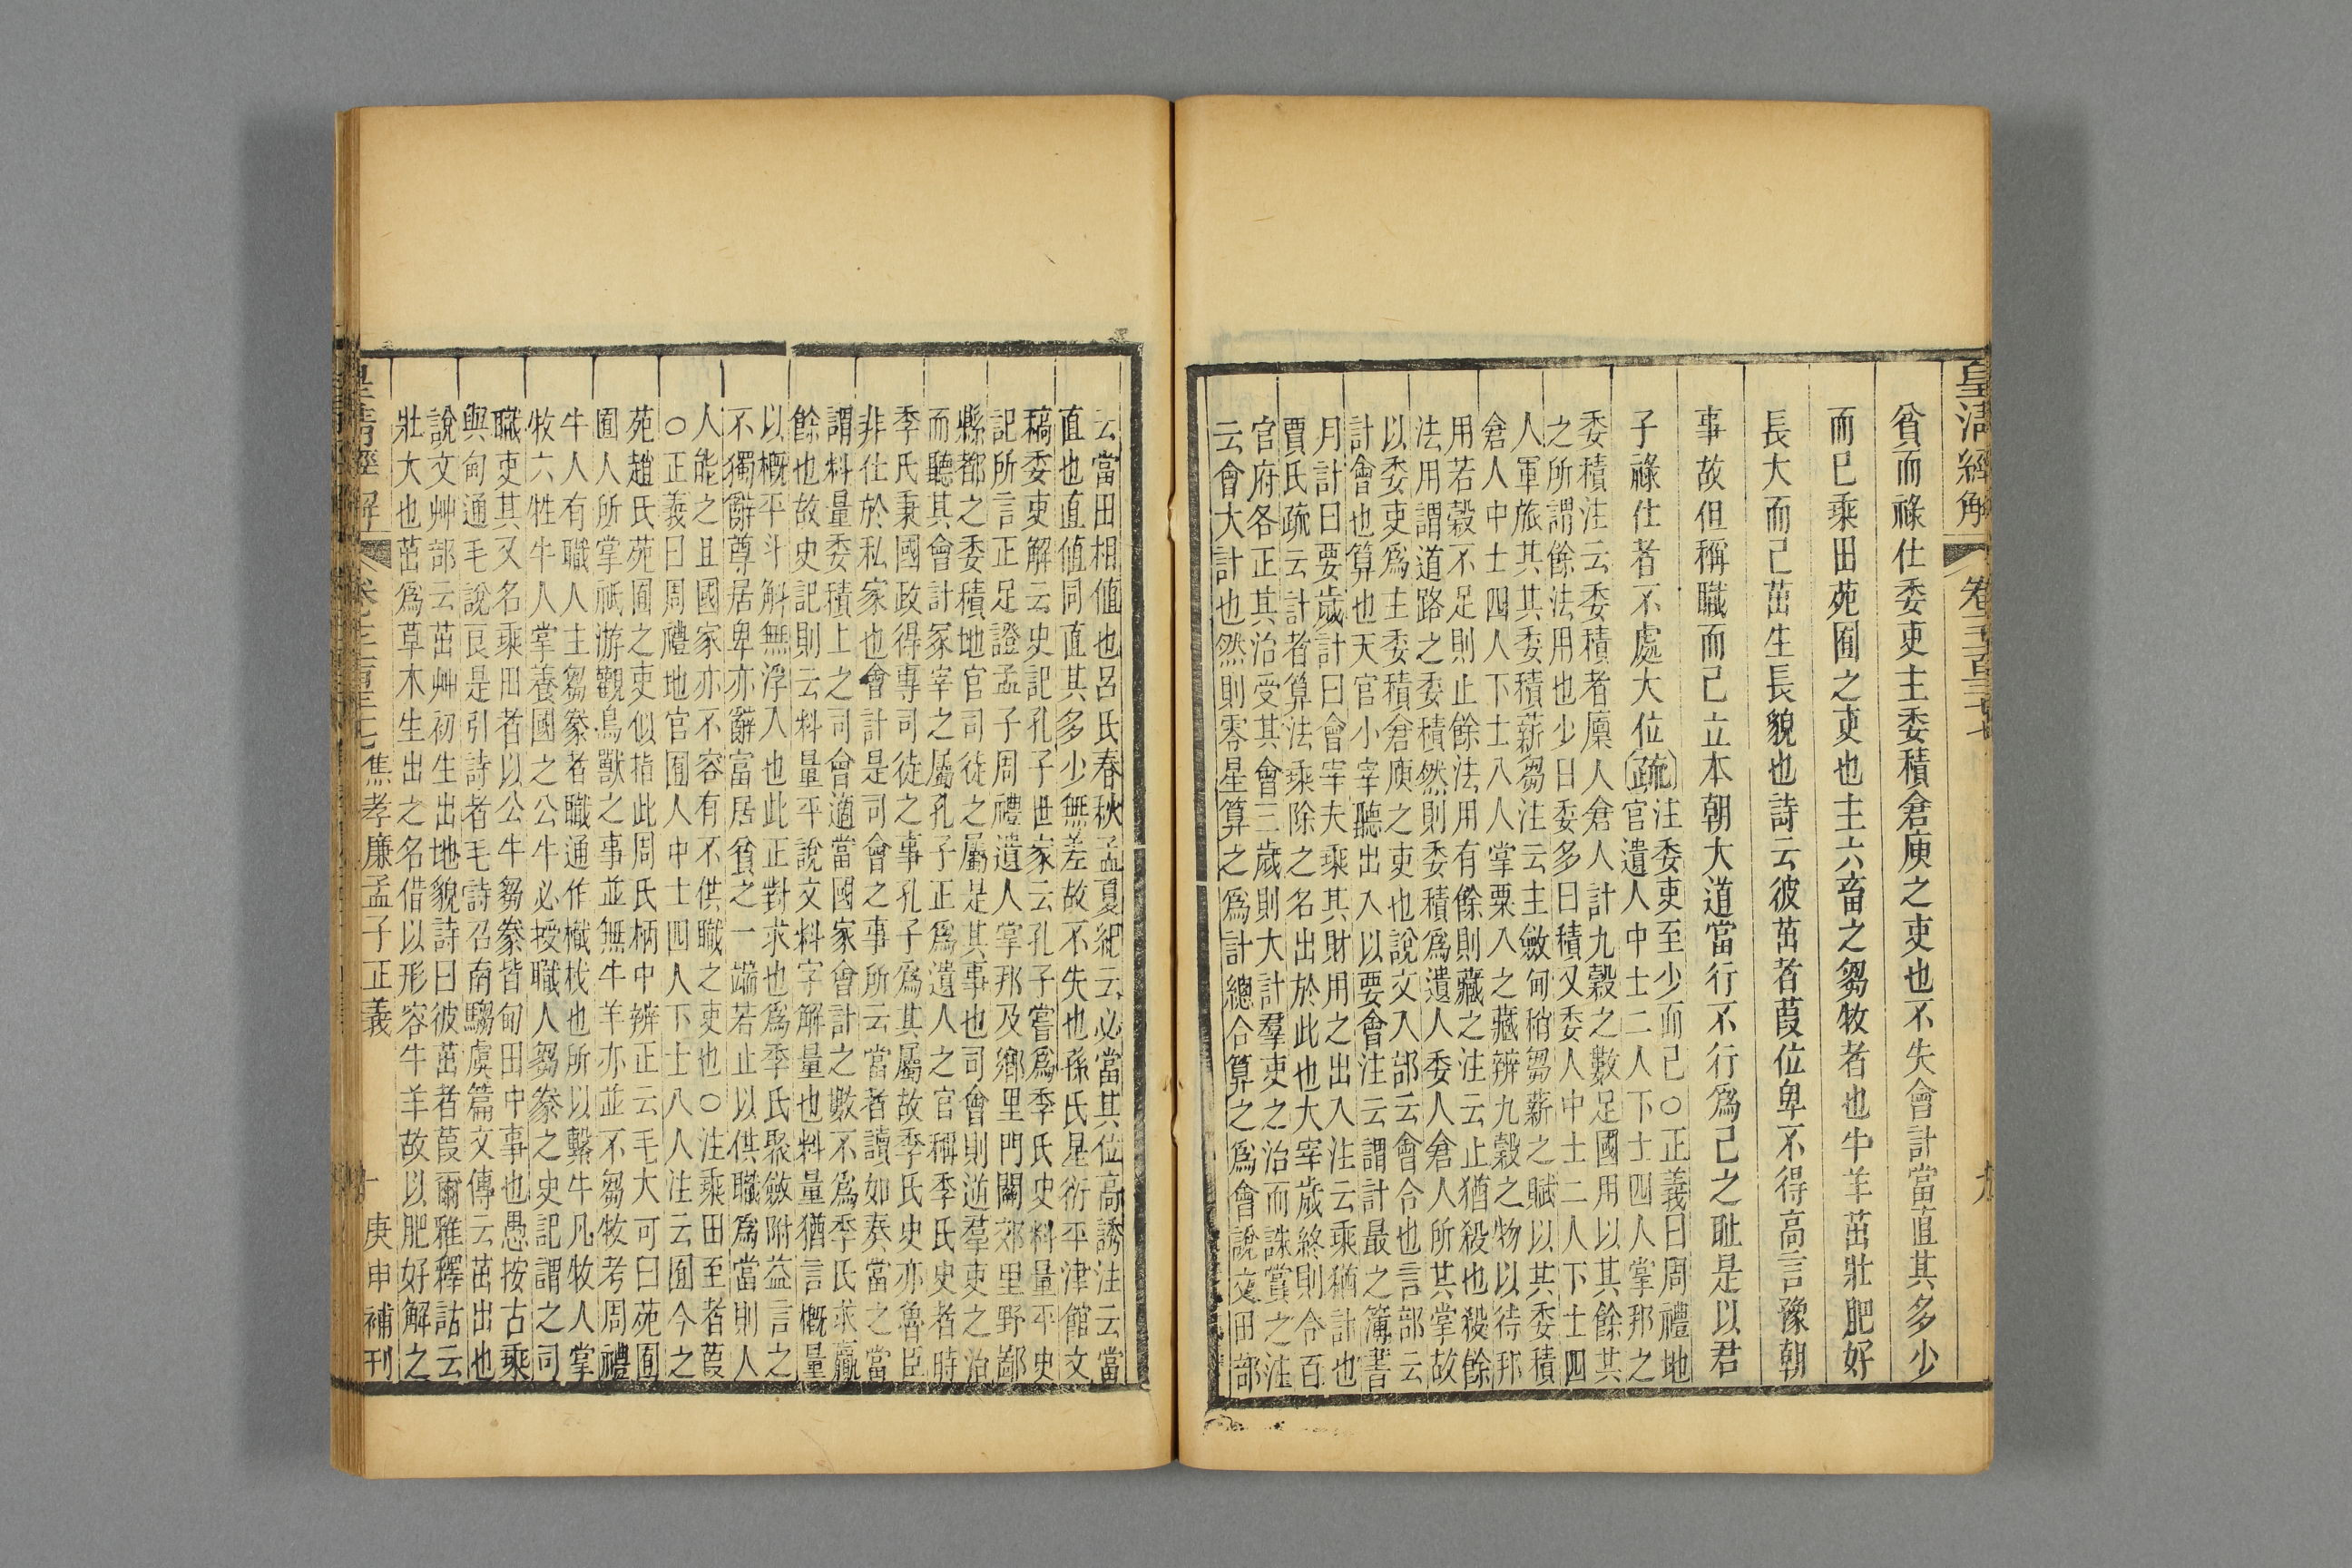 皇清經解
卷千百三十七
九
貧而祿仕委吏主委積倉庾之吏也不失會計當直其多少
而已乘田苑囿之吏也主六畜之芻牧者也牛羊茁壯肥好
長大而已茁生長貌也詩云彼茁者葭位卑不得高言豫朝
事故但稱職而已立本朝大道當行不行爲己之恥是以君
子祿仕者不處大位疏
注委吏至少而已○正義曰周禮地
官遺人中士二人下士四人掌邦之
委積注云委積者廩人倉人計九穀之數足國用以其餘其
之所謂餘法用也少曰委多曰積又委人中士二人下士四
人軍旅其其委積薪芻注云主斂甸稍芻薪之賦以其委積
倉人中士四人下士八人掌粟入之藏辨九穀之物以待邦
用若穀不足則止餘法用有餘則藏之注云止猶殺也殺餘
法用謂道路之委積然則委積爲遺人委人倉人所其掌故
以委吏爲主委積倉庾之吏也說文入部云會令也言部云
計會也算也天官小宰聽出入以要會注云謂計最之簿書
月計曰要歲計曰會宰夫乘其財用之出入注云乘猶計也
賈氏疏云計者算法乘除之名出於此也大宰歲終則令百
官府各正其治受其會三歲則大計羣吏之治而誅賞之注
云會大計也然則零星算之爲計總合算之爲會說文田部
云當田相値也呂氏春秋孟夏紀云必當其位高誘注云當
直也直値同直其多少無差故不失也孫氏星衍平津館文
稿委吏解云史記孔子世家云孔子嘗爲季氏史料量平史
記所言正足證孟子周禮遺人掌邦及鄉里門關郊里野鄙
縣都之委積地官司徒之屬是其事也司會則逆羣吏之治
而聽其會計冢宰之屬孔子正爲遺人之官稱季氏史者時
季氏秉國政得專司徒之事孔子爲其屬故季氏史亦魯臣
非仕於私家也會計是司會之事所云當者讀如奏當之當
謂料量委積上之司會適當國家會計之數不爲季氏求贏
餘也故史記則云料量平說文料字解量也料量猶言概量
以概平斗斛無浮入也此正對求也爲季氏聚斂附益言之
不獨辭尊居卑亦辭富居貧之一端若止以供職爲當則人
人能之且國家亦不容有不供職之吏也○注乘田至者葭
○正義曰周禮地官囿人中士四人下士八人注云囿今之
苑趙氏苑囿之吏似指此周氏柄中辨正云毛大可曰苑囿
囿人所掌祇游觀鳥獸之事並無牛羊亦並不芻牧考周禮
牛人有職人主芻豢者職通作樴杙也所以繫牛凡牧人掌
牧六牲牛人掌養國之公牛必授職人芻豢之史記謂之司
職吏其又名乘田者以公牛芻豢皆甸田中事也愚按古乘
與甸通毛說良是引詩者毛詩召南騶虞篇文傳云茁出也
說文艸部云茁艸初生出地貌詩曰彼茁者葭爾雅釋詁云
壯大也茁爲草木生出之名借以形容牛羊故以肥好解之
皇清經解
焦孝廉孟子正義
十
庚申補刊